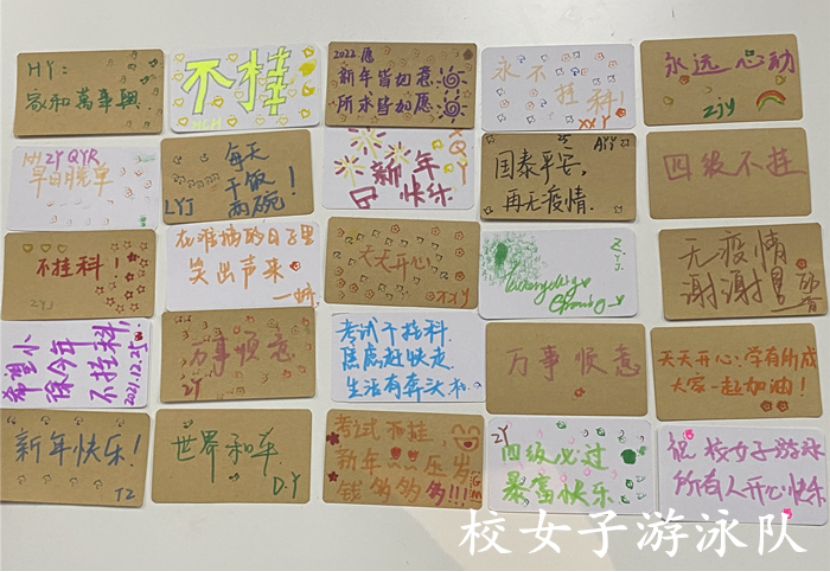 HY:
家和萬事興
不挂
HCH
2022.愿
新年皆如意
所求皆如愿
永不
挂科!
XXY
永远心动
ZJY
KH ZY QYR
早日脱单
每天
干饭
两碗!
LYJ
XQY
新年
快乐
AYY
国泰平安,
再无疫情.
四级不挂
不挂科!
ZYJ
在难搞的日子里
笑出声来
天天开心
XXY
ZYJ
无疫情
谢谢!
希望小
徐今年
不挂科,
2021.12.25
万事顺意
ZY
考试不挂科.
焦虑赶快走.
生活有奔头
万事顺意
天天开心;学有所成
大家一起加油!
新年快乐!
TZ
世界和平.
D.Y
考试不挂,
新年 压岁
钱多多多!!!
GM
ZY
四级必过
暴富快乐
祝校女子游泳
所有人开心快乐
校女子游泳队